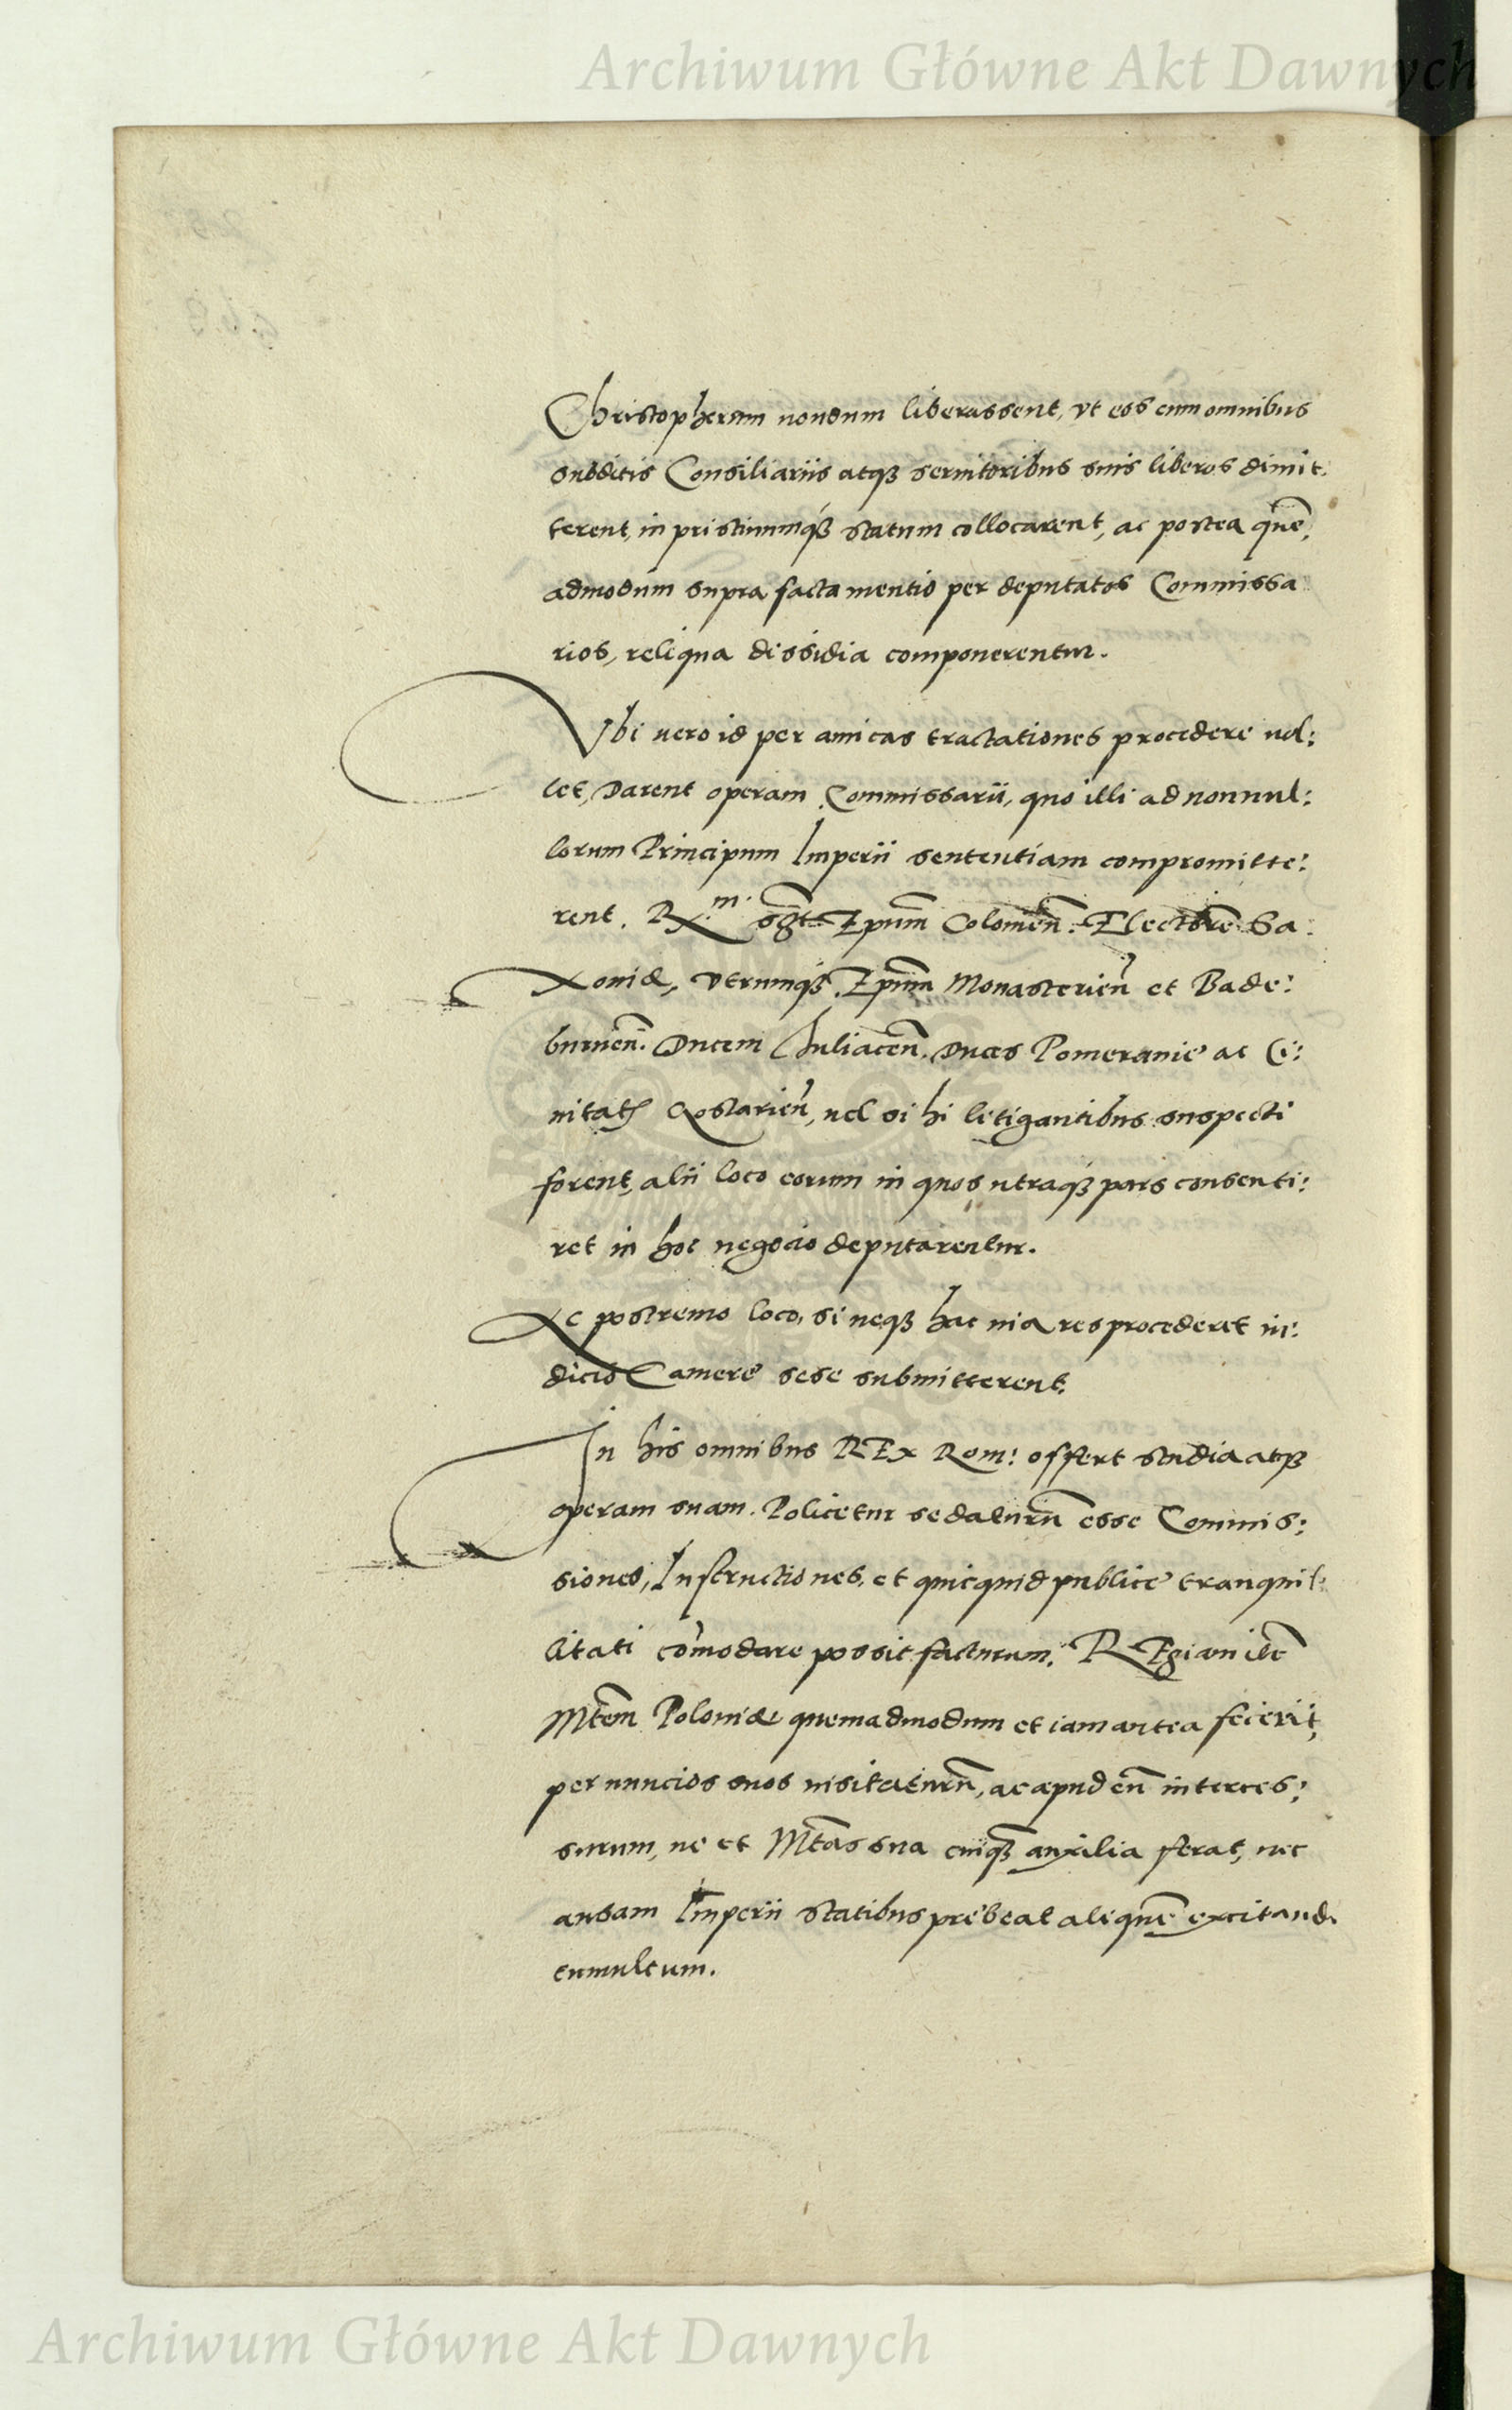 Archiwum Główne Akt Dawnych
Christopherum nondum liberassent, vt eos cum omnibus
subditis Consiliariis atqȝ seruitoribus suis liberos dimit:
terent, in pristinumqȝ statum collocarent, ac postea quē,
admodum supra facta mentio per deputatos Commissa
rios, reliqua dissidia componerentur.
Vbi uero id per amicas tractationes procedere nol:
let, Darent operam Commissarii, quo illi ad nonnul:
lorum Principum Imperii sententiam compromitte:
rent. Rx.m. Epūm Colonien̄. Electorē Sa:
xoniæ, Vtrumqȝ Epūm Monasterien̄ et Bade:
burnen̄. Ducem Iuliacen̄. Duces Pomeranie ac Ci:
uitatē Goslarien̄, uel si hi litigantibus suspecti
forent, alii loco eorum in quos utraqȝ pars consenti:
ret in hoc negocio deputarentur.
Ac postremo loco, si neqȝ hac uia res procederet iu:
dicio Camere sese submitterent.
In his omnibus REx Rom: offert studia atqȝ
operam suam. Policetur se daturū esse Commis:
siones, Instructiones, et quicquid publice tranquil:
litati com̄odare possit facturum. REgiam itē
Mtēm Poloniæ quemadmodum et iam antea fecerit,
per nuncios suos uisitaturū, ac apud eū interces:
surum, ne et Mtās sua cuiqȝ auxilia ferat, nec
ansam Imperii statibus prebeat aliquē excitandi
tumultum.
Archiwum Główne Akt Dawnych